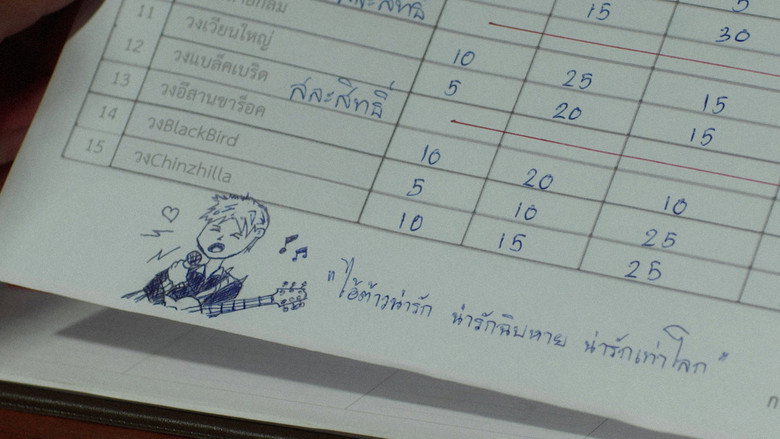 5
15 30
สละสิทธิ์
10 25 15
11 วงเวียนใหญ่ 5 20 15
12 วงแบล็คเบริด สละสิทธิ์
13 วงอีสานชาร็อค 10 20 10
14 วงBlackBird 5 10 25
15 วงChinzhilla 10 15 25
"ไอ้ต้าวน่ารัก น่ารักฉิบหาย น่ารักเท่าโลก"